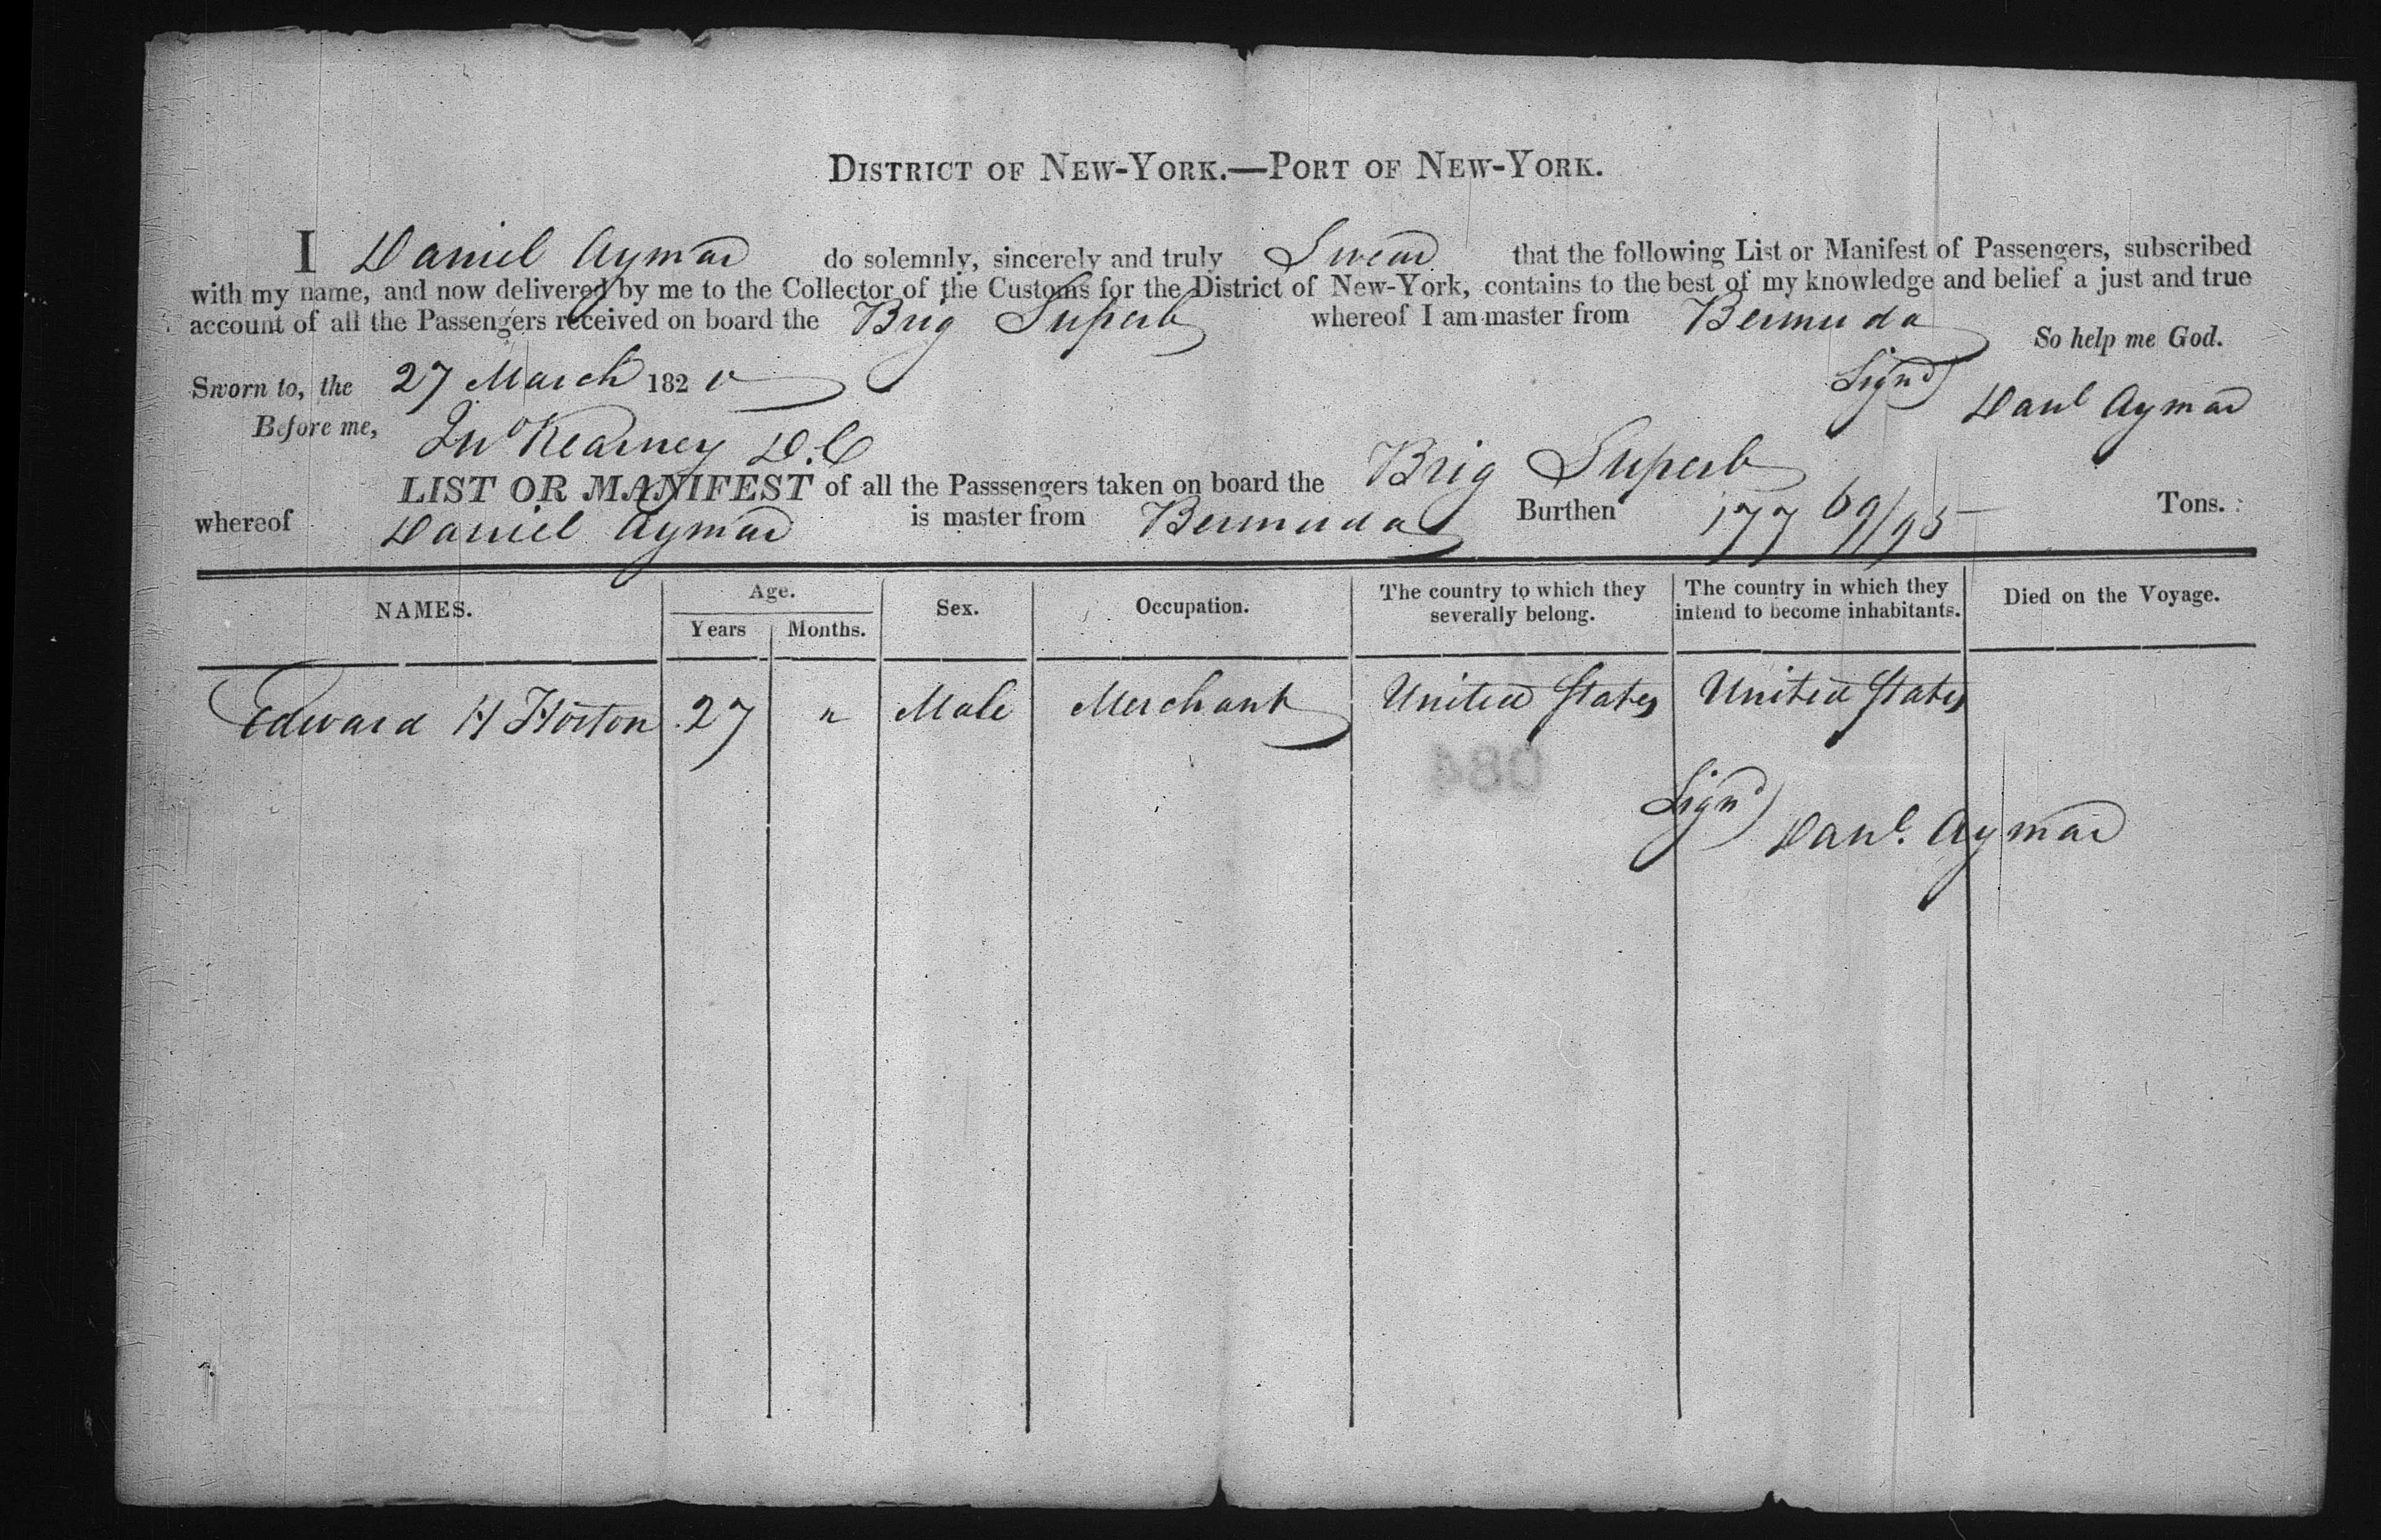 DISTRICT OF NEW-YORK.—PORT OF NEW-YORK.
I Daniel Aymar do solemnly, sincerely and truly Swear that the following List or Manifest of Passengers, subscribed
with my name, and now delivered by me to the Collector of the Customs for the District of New-York, contains to the best of my knowledge and belief a just and true
account of all the Passengers received on board the Brig Superb whereof I am master from Bermuda
So help me God.
Sworn to, the 27 March 1820 Signd Danl Aymar
Before me, Jno Kearney D.C
LIST OR MANIFEST of all the Passsengers taken on board the Brig Superb
whereof Daniel Aymar is master from Bermuda Burthen 177 69/95 Tons.
NAMES. Age. Years Months. Sex. Occupation. The country to which they severally belong. The country in which they intend to become inhabitants. Died on the Voyage.
Edward H Horton 27 " Male Merchant United States United States
084
Signd Danl. Aymar